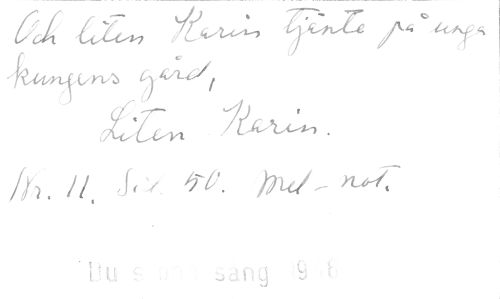 Och liten Karin tjänte på unga
kungens gård,
Liten Karin.
Nr. 11. Sid. 50. Mel-not.
Du sang